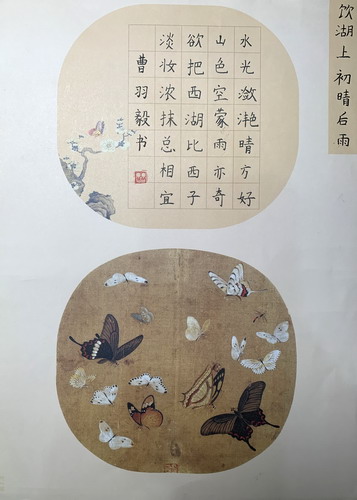 饮湖上 初晴后雨
水光潋滟晴方好
山色空蒙雨亦奇
欲把西湖比西子
淡妆浓抹总相宜
曹羽毅书